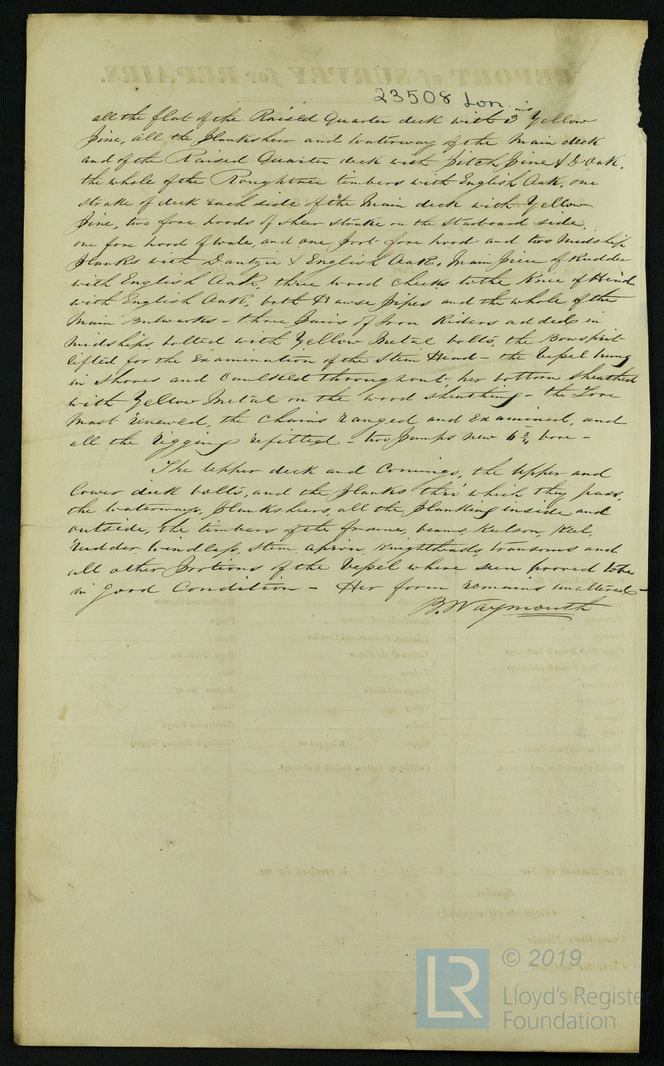 23508 Lon
all the flat of the Raised Quarter deck with 3 ins Yellow
Pine, all the planksheer and waterway of the Main deck
and of the Raised Quarter deck with pitch pine & D Oak,
the whole of the Roughtree timbers with English Oak, one
strake of deck each side of the Main deck with Yellow
Pine, two fore hoods of sheer strake on the starboard side,
one fore hood of wale, and one foot fore hood and two Midship
planks with Dantzic & English Oak, Main piece of Rudder
with English Oak, three wood cheeks to the Knee of Head
with English Oak, both Hawse pipes and the whole of the
Main Bulwarks - three pairs of Iron Riders added in
Midships bolted with Yellow Metal bolts, the Bowsprit
lifted for the Examination of the Stem Head - the Vessel hung
in Shores and Caulked throughout, her bottom sheathed
with Yellow Metal on the wood sheathing - the Fore
Mast renewed, the Chains ranged and Examined, and
all the Rigging refitted - two pumps new 6¾ bore -
The Upper deck and Comings, the Upper and
Lower deck bolts, and the planks thro' which they pass,
the Waterways, planksheers, all the planking inside and
outside, the timbers of the frame, beams, Keelson, Keel,
Rudder, Windlass, Stem, Apron, Knightheads, transoms and
all other portions of the Vessel where seen proved to be
in good Condition - Her form remains unaltered -
B. Waymouth
LR
© 2019
Lloyd's Register
Foundation